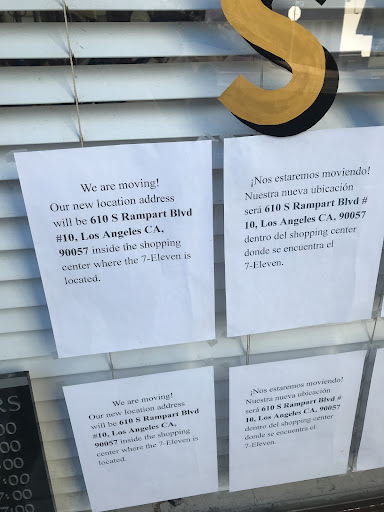 S
We are moving!
Our new location address
will be 610 S Rampart Blvd
#10, Los Angeles CA,
90057 inside the shopping
center where the 7-Eleven is
located.
¡Nos estaremos moviendo!
Nuestra nueva ubicación
será 610 S Rampart Blvd #
10, Los Angeles CA, 90057
dentro del shopping center
donde se encuentra el
7-Eleven.
We are moving!
Our new location address
will be 610 S Rampart Blvd
#10, Los Angeles CA,
90057 inside the shopping
center where the 7-Eleven is
located.
¡Nos estaremos moviendo!
Nuestra nueva ubicación
será 610 S Rampart Blvd #
10, Los Angeles CA, 90057
dentro del shopping center
donde se encuentra el
7-Eleven.
RS
:00
:00
:00
7:00
:00